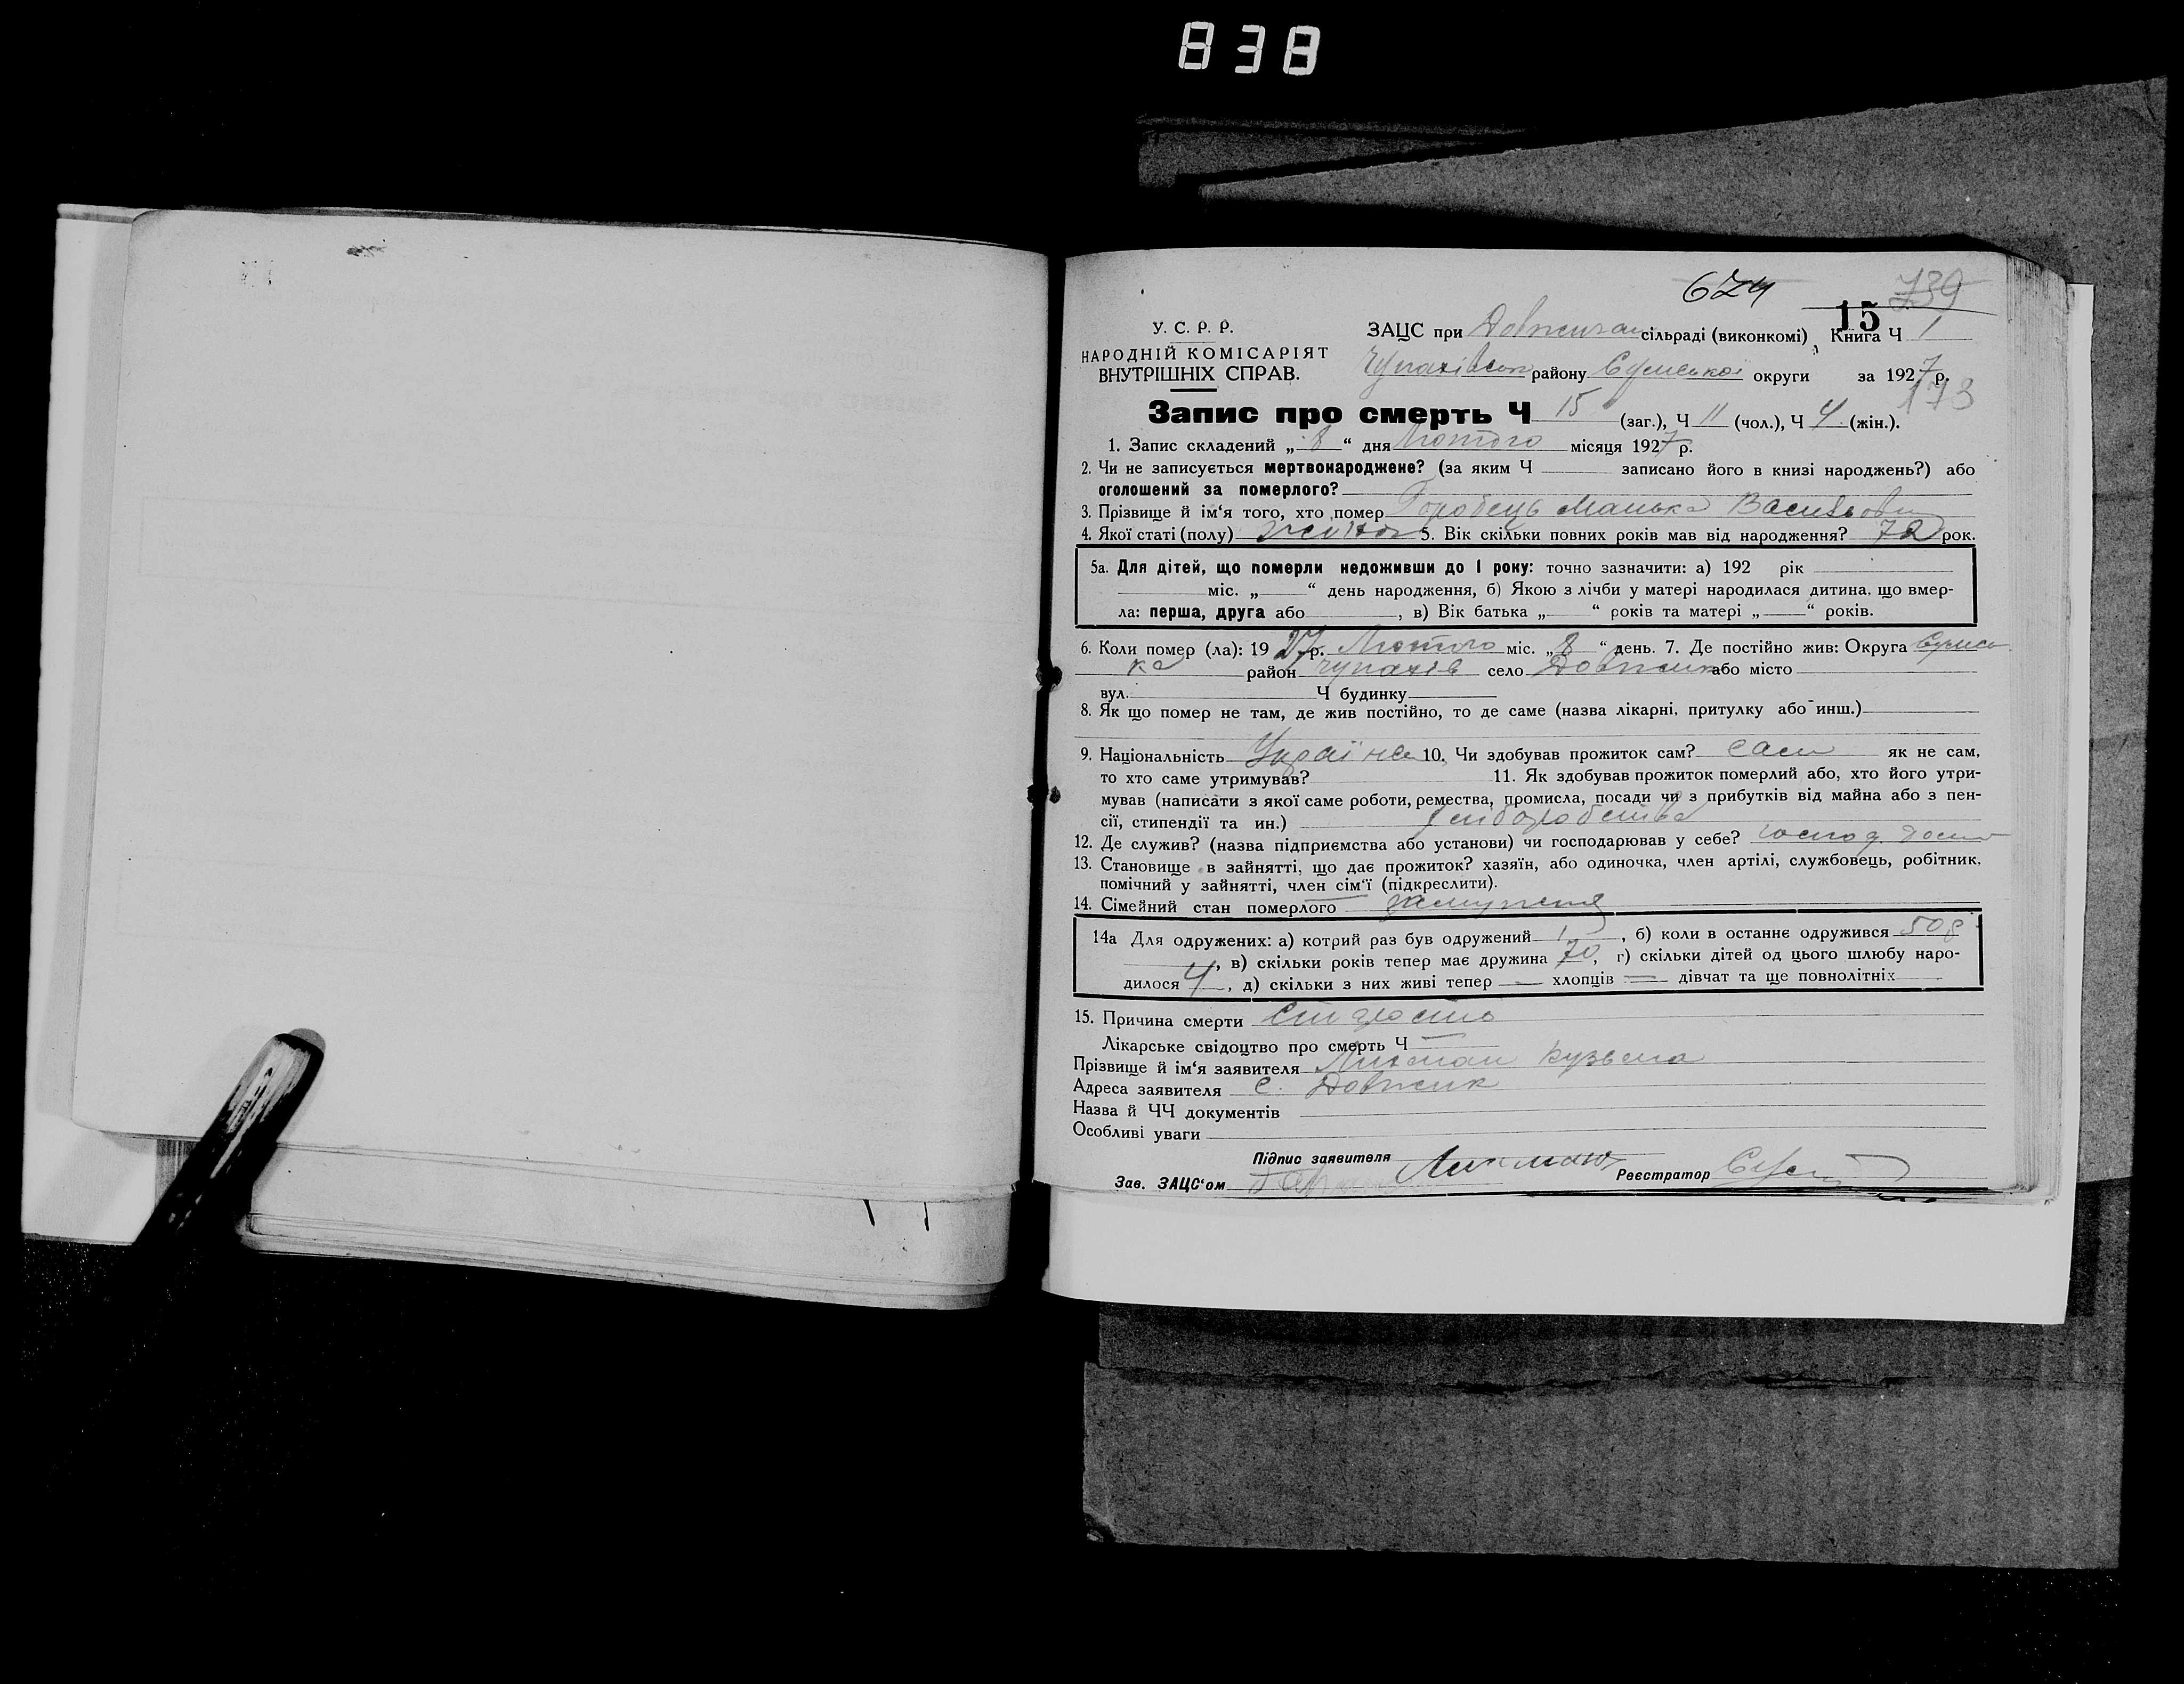 838
674 739
15
У. С. Р. Р. ЗАЦС при Довжичан сільраді (виконкомі) Книга Ч 1
НАРОДНІЙ КОМІСАРІЯТ
ВНУТРІШНІХ СПРАВ. Чупахівськ району Сумської округи за 1927 р.
173
Запис про смерть Ч 15 (заг.), Ч 11 (чол.), Ч 4 (жін.).
1. Запис складений „ 8 “ дня Лютого місяця 1927 р.
2. Чи не записується мертвонароджене? (за яким Ч записано його в книзі народжень?) або
оголошений за померлого?
3. Прізвище й ім‘я того, хто помер Горобець Манька
4. Якої статі (полу) 5. Вік скільки повних років мав від народження? 72 рок.
5а. Для дітей, що померли недоживши до 1 року: точно зазначити: а) 192 рік
міс. „ “ день народження, б) Якою з лічби у матері народилася дитина, що вмер-
ла: перша, друга або , в) Вік батька „ “ років та матері „ “ років.
6. Коли помер (ла): 19 27 р. Лютого міс. „ 8 “ день. 7. Де постійно жив: Округа Сумсь
ка район Чупахів село Довжик або місто
вул. Ч будинку
8. Як що помер не там, де жив постійно, то де саме (назва лікарні, притулку або инш.)
9. Національність Україна 10. Чи здобував прожиток сам? сам як не сам,
то хто саме утримував? 11. Як здобував прожиток померлий або, хто його утри-
мував (написати з якої саме роботи, ремества, промисла, посади чи з прибутків від майна або з пен-
сії, стипендії та ин.) хліборобства
12. Де служив? (назва підприємства або установи) чи господарював у себе? господ.
13. Становище в зайнятті, що дає прожиток? хазяїн, або одиночка, член артілі, службовець, робітник,
помічний у зайнятті, член сім‘ї (підкреслити).
14. Сімейний стан померлого замужня
14а Для одружених: а) котрий раз був одружений 1 , б) коли в останнє одружився 50
, в) скільки років тепер має дружина 70, г) скільки дітей од цього шлюбу наро-
дилося 4 , д) скільки з них живі тепер — хлопців — дівчат та ще повнолітніх
15. Причина смерти старость
Лікарське свідоцтво про смерть Ч —
Прізвище й ім‘я заявителя Кузьма
Адреса заявителя с. Довжик
Назва й ЧЧ документів
Особливі уваги
Підпис заявителя
Зав. ЗАЦС‘ом Реєстратор